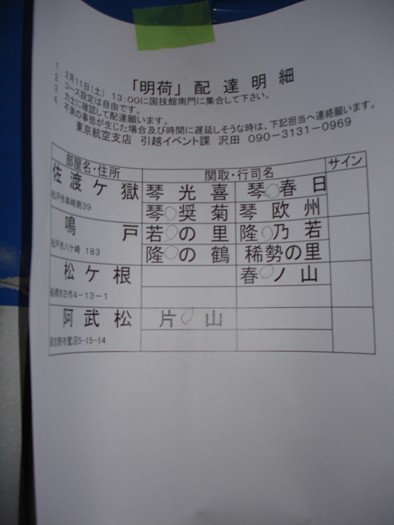 「明荷」配達明細
1 2月11日(土) 13:00に国技館南門に集合して下さい。
2 コース設定は自由です。
3 力士に確認して配達願います。
4 不測の事態が生じた場合及び時間に遅延しそうな時は、下記担当へ連絡願います。
東京航空支店 引越イベント課 沢田 090-3131-0969
部屋名・住所 関取・行司名 サイン
佐渡ケ嶽 琴光喜 琴春日
松戸市串崎南39 琴奨菊 琴欧州
鳴戸 若の里 隆乃若
松戸市八ケ崎 183 隆の鶴 稀勢の里
松ケ根 春ノ山
船橋市古作4-13-1
阿武松 片山
習志野市鷺沼5-15-14